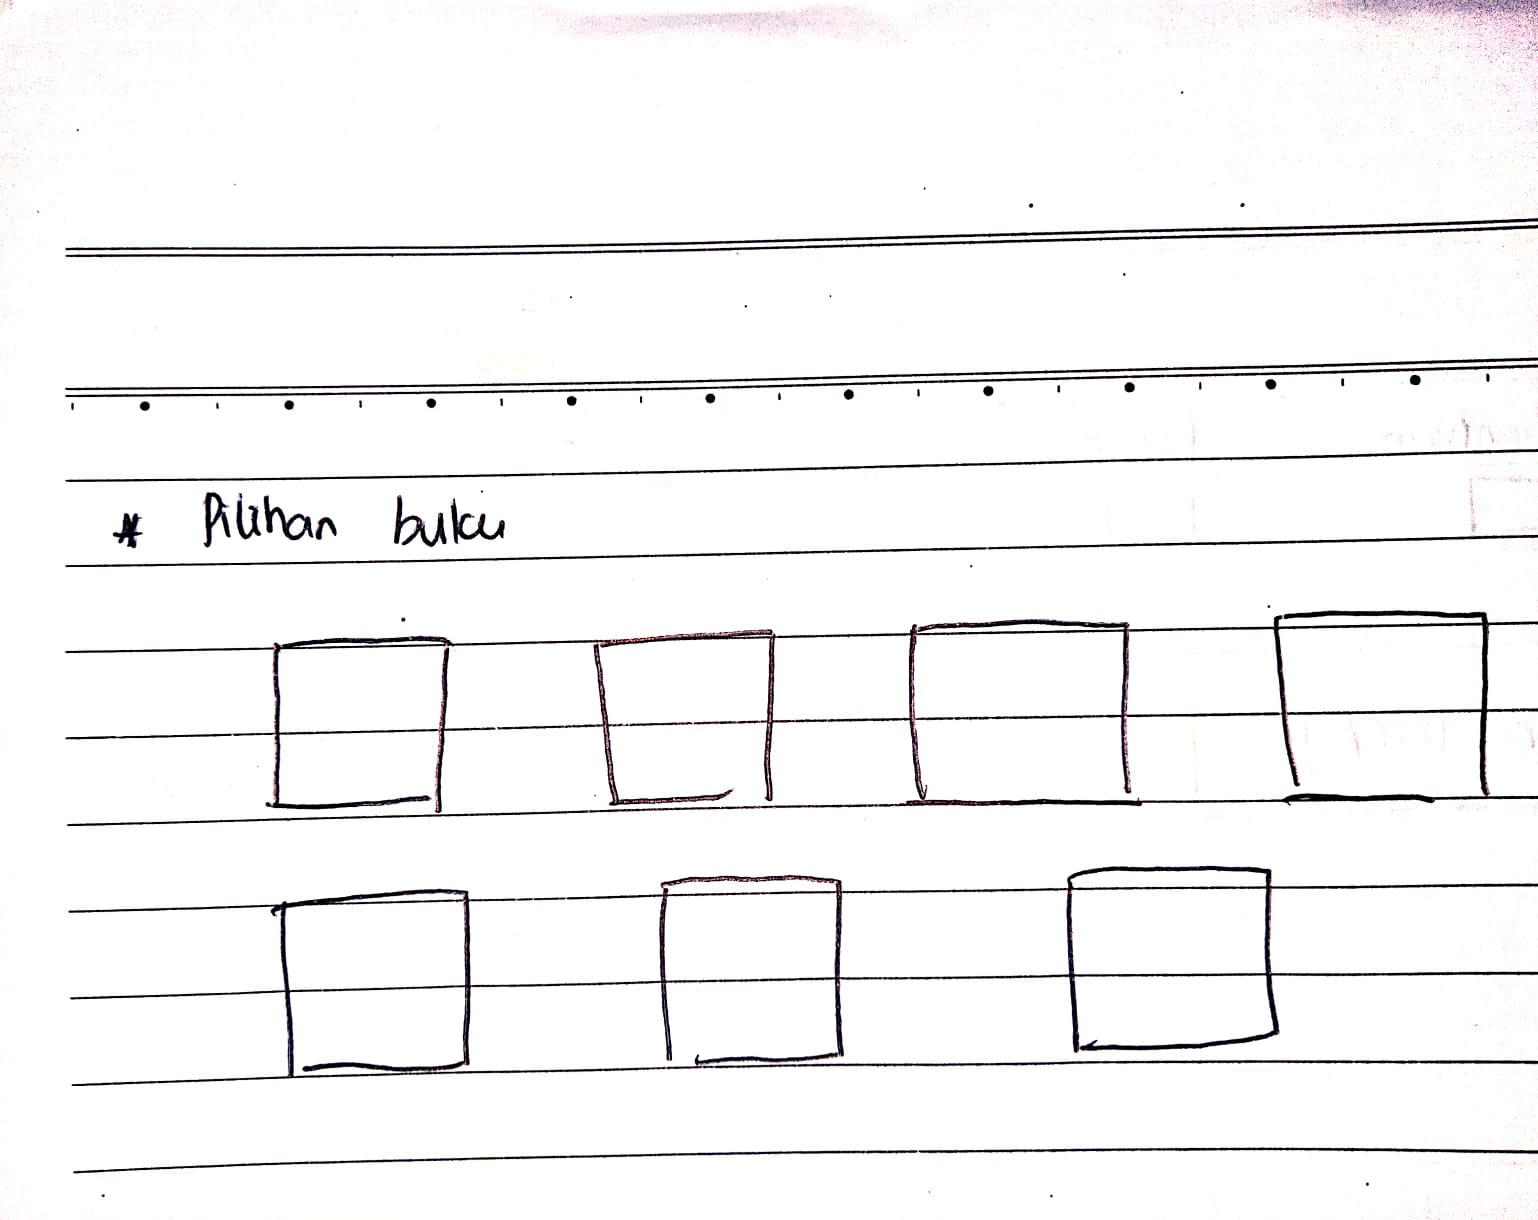 * Pilihan buku